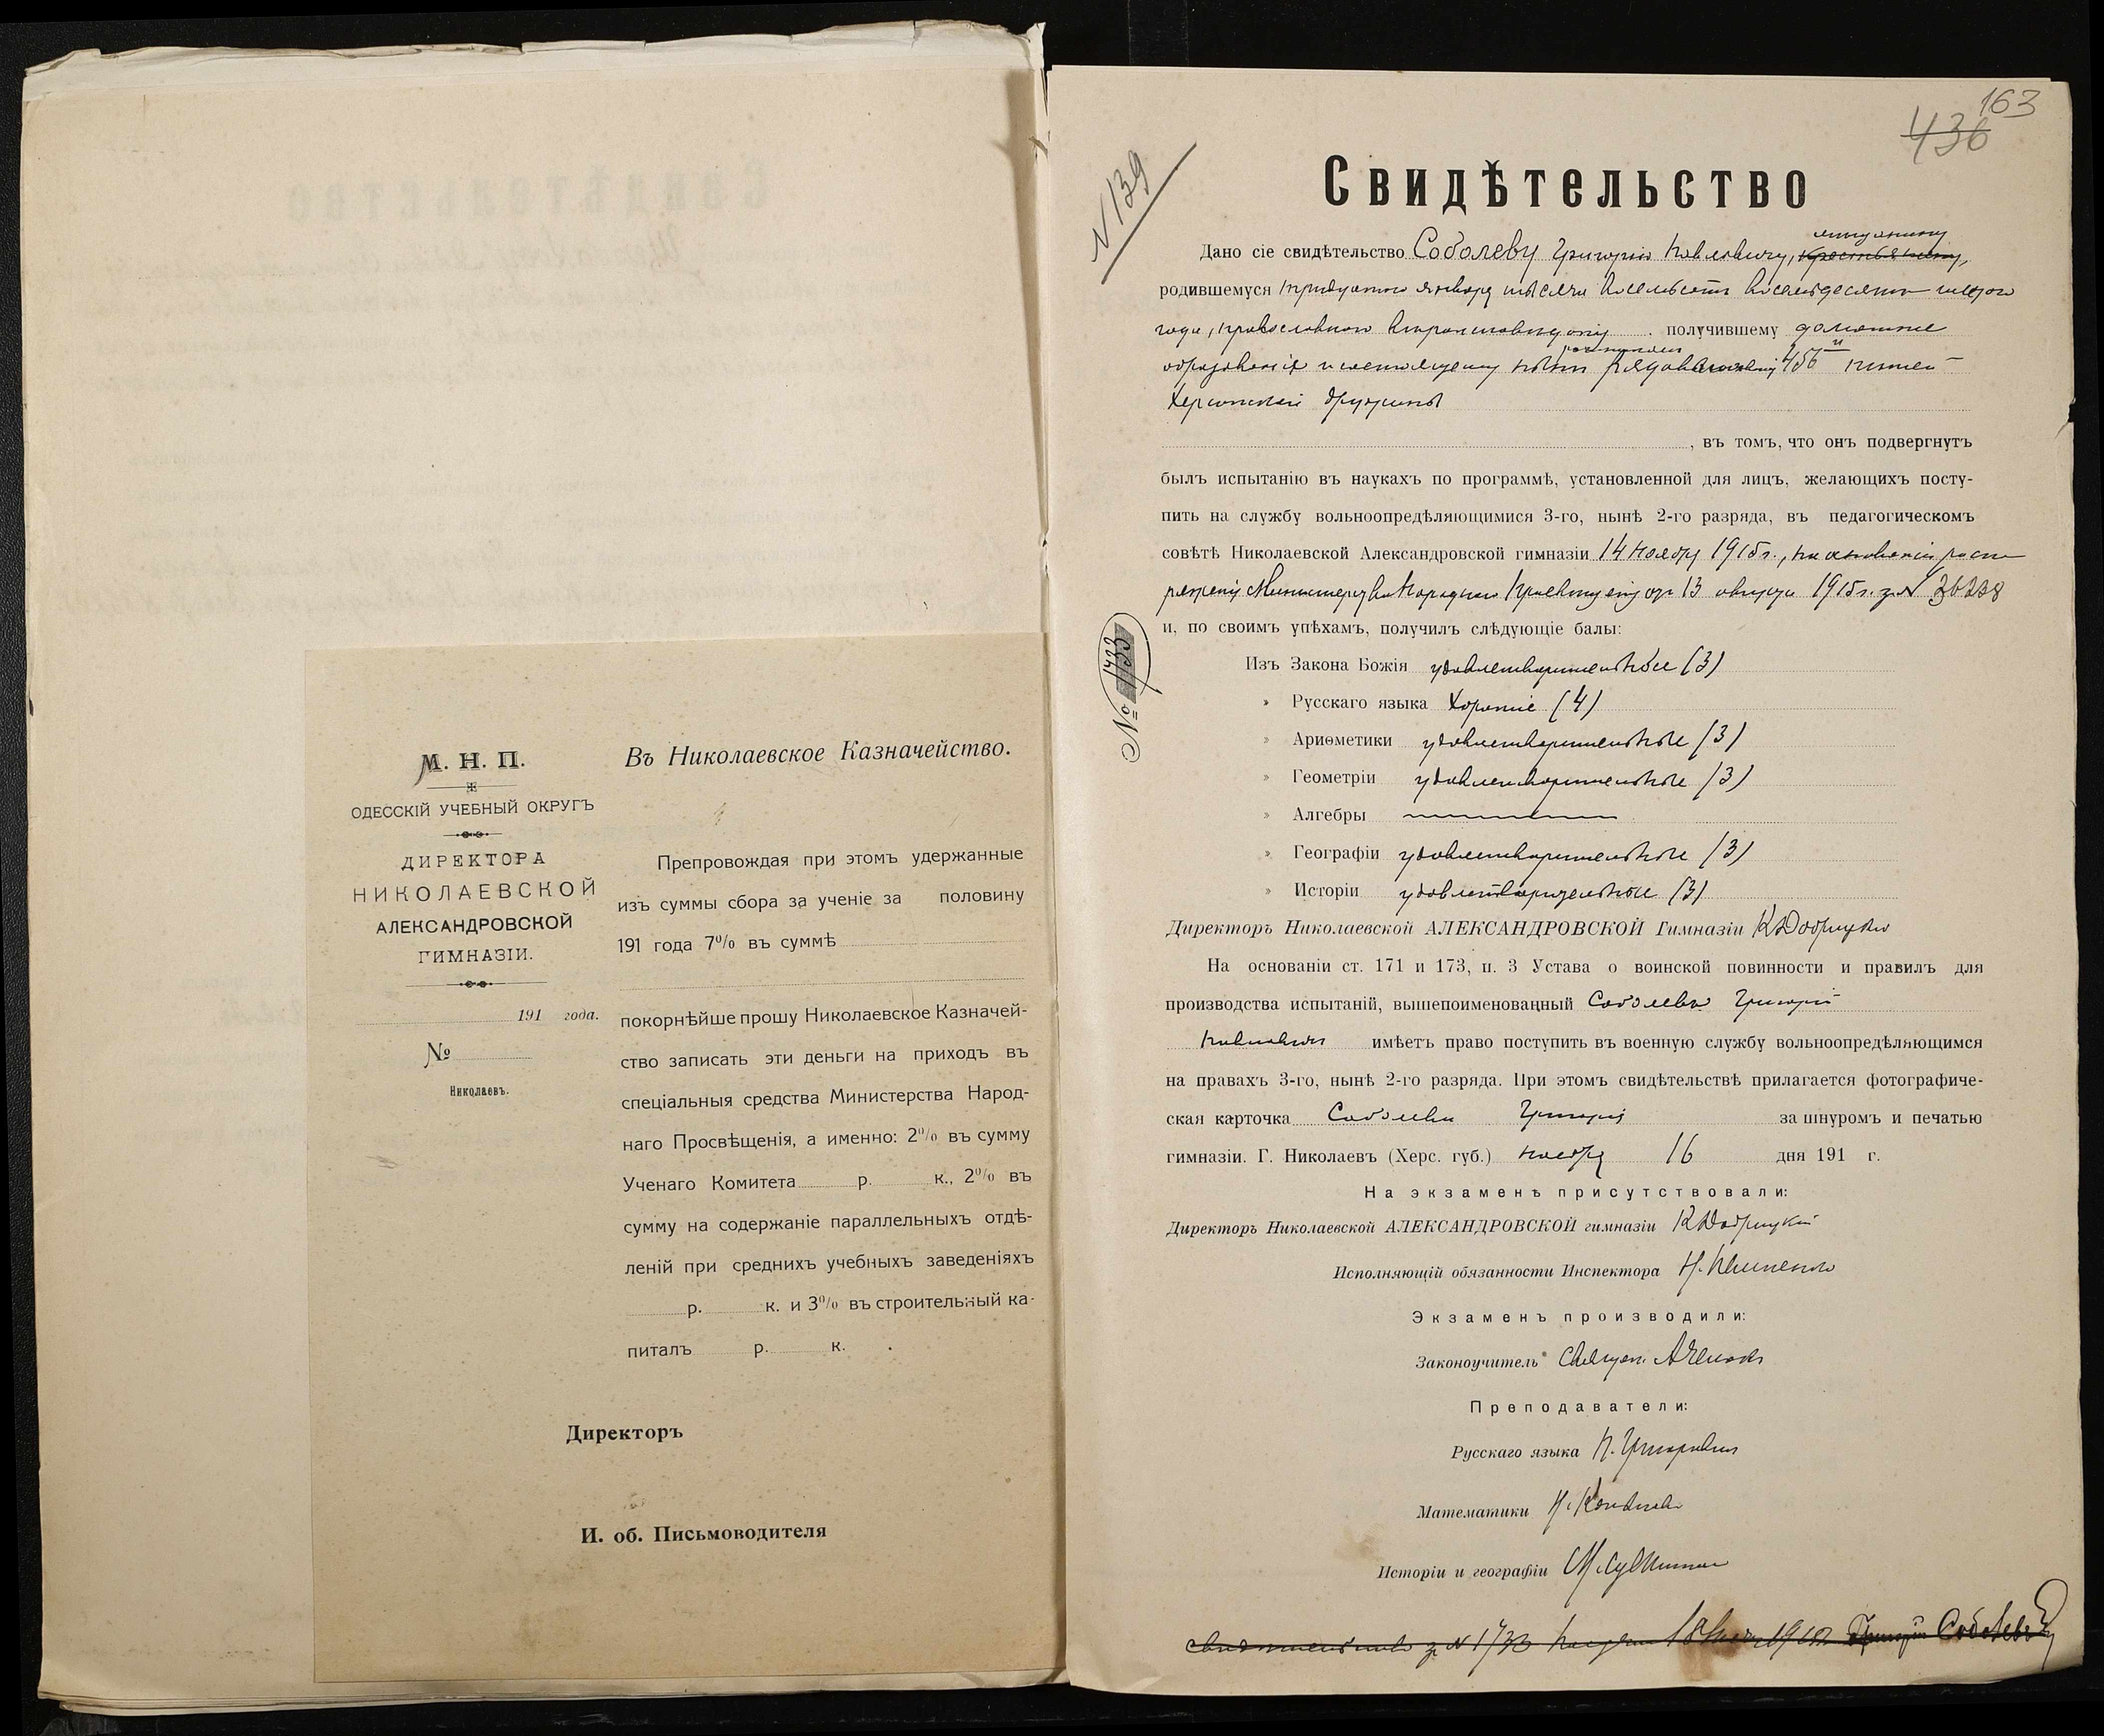 М. Н. П.
ОДЕССКІЙ УЧЕБНЫЙ ОКРУГЪ
ДИРЕКТОРА
НИКОЛАЕВСКОЙ
АЛЕКСАНДРОВСКОЙ
ГИМНАЗІИ.
191 года.
№
Николаевъ.
Въ Николаевское Казначейство.
Препровождая при этомъ удержанные
изъ суммы сбора за ученіе за половину
191 года 7% въ суммѣ
покорнѣйше прошу Николаевское Казначей-
ство записать эти деньги на приходъ въ
спеціальныя средства Министерства Народ-
наго Просвѣщенія, а именно: 2% въ сумму
Ученаго Комитета р. к., 2% въ
сумму на содержаніе параллельныхъ отдѣ-
леній при среднихъ учебныхъ заведеніяхъ
р. к. и 3% въ строительный ка-
питалъ р. к.
Директоръ
И. об. Письмоводителя
163
436
N 139
Свидѣтельство
мѣщанину
Дано сіе свидѣтельство Соболеву Григорію Павловичу, крестьянину,
родившемуся тридцатаго января тысяча восемьсотъ восемьдесятъ
года, православнаго вѣроисповѣданія получившему домашнее
образованіе и состоящему нынѣ 456й пѣшей
Херсонской дружины
, въ томъ, что онъ подвергнутъ
былъ испытанію въ наукахъ по программѣ, установленной для лицъ, желающихъ посту-
пить на службу вольноопредѣляющимися 3-го, нынѣ 2-го разряда, въ педагогическомъ
совѣтѣ Николаевской Александровской гимназіи 14 ноября 1915 г., на основаніи распо
ряженія Министерства Народнаго Просвѣщенія отъ 13 августа 1915 г. за N 36238
и, по своимъ упѣхамъ, получилъ слѣдующіе балы:
№ 1733
Изъ Закона Божія удовлетворительные (3)
» Русскаго языка хорошіе (4)
» Ариѳметики удовлетворительные (3)
» Геометріи удовлетворительные (3)
» Алгебры
» Географіи удовлетворительные (3)
» Исторіи удовлетворительные (3)
Директоръ Николаевской АЛЕКСАНДРОВСКОЙ Гимназіи К Добрицкій
На основаніи ст. 171 и 173, п. 3 Устава о воинской повинности и правилъ для
производства испытаній, вышепоименованный Соболевъ Григорій
Павловичъ имѣетъ право поступить въ военную службу вольноопредѣляющимся
на правахъ 3-го, нынѣ 2-го разряда. При этомъ свидѣтельствѣ прилагается фотографиче-
ская карточка Соболева Григорія за шнуромъ и печатью
гимназіи. Г. Николаевъ (Херс. губ.) ноября 16 дня 191 г.
На экзаменѣ присутствовали:
Директоръ Николаевской АЛЕКСАНДРОВСКОЙ гимназіи К Добрицкій
Исполняющій обязанности Инспектора
Экзаменъ производили:
Законоучитель Священ.
Преподаватели:
Русскаго языка П. Григоровичъ
Математики
Исторіи и географіи
свидѣтельство за N 1733 получилъ Григорій Соболевъ